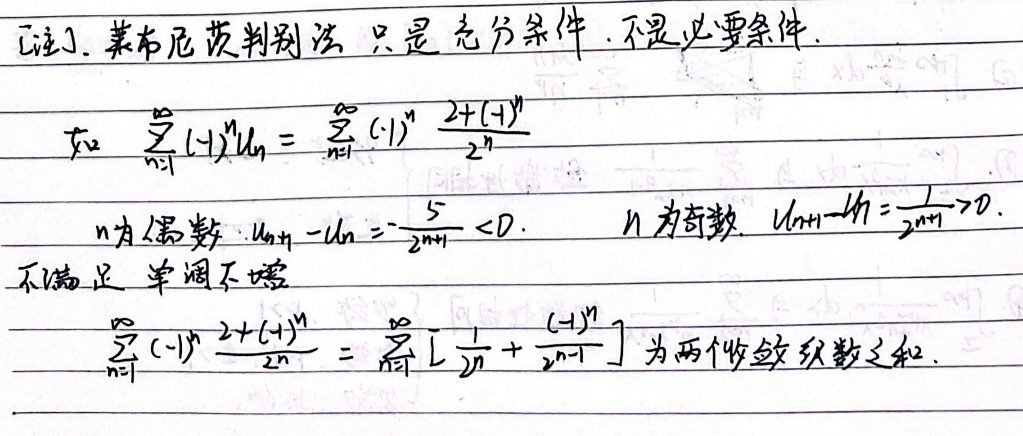 [注]. 莱布尼茨判别法 只是 充分条件. 不是必要条件.
如 ∑_{n=1}^{∞} (-1)^n u_n = ∑_{n=1}^{∞} (-1)^n \frac{2+(-1)^n}{2^n}
n为偶数. u_{n+1} - u_n = -\frac{5}{2^{n+1}} < 0. n为奇数. u_{n+1} - u_n = \frac{1}{2^{n+1}} > 0.
不满足 单调不增
∑_{n=1}^{∞} (-1)^n \frac{2+(-1)^n}{2^n} = ∑_{n=1}^{∞} [\frac{1}{2^n} + \frac{(-1)^n}{2^{n-1}}] 为两个收敛级数之和.